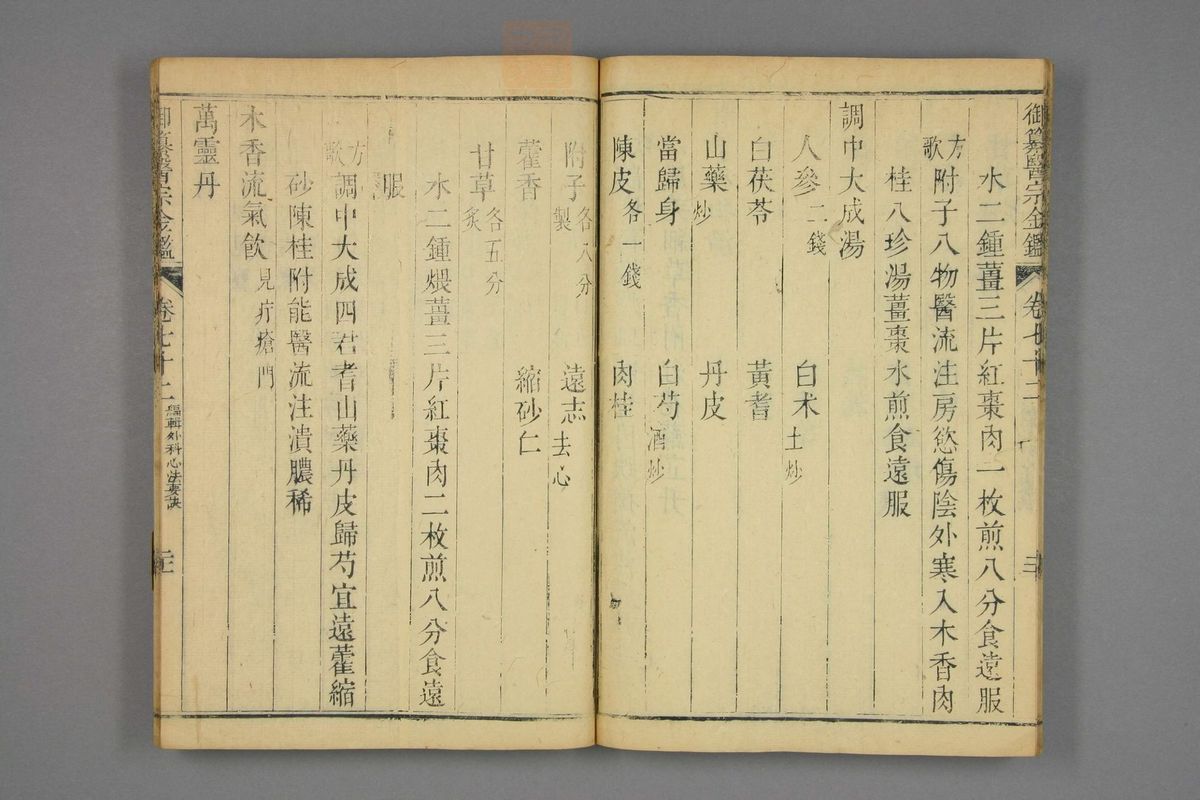 御纂醫宗金鑑 卷七十二
水二鍾薑三片紅棗肉一枚煎八分食遠服
方歌 附子八物醫流注房慾傷陰外寒入木香肉
桂八珍湯薑棗水煎食遠服
調中大成湯
人參二錢 白朮土炒
白茯苓 黃耆
山藥炒 丹皮
當歸身 白芍酒炒
陳皮各一錢 肉桂
附子各八分製 遠志去心
藿香 縮砂仁
甘草各五分炙
水二鍾煨薑三片紅棗肉二枚煎八分食遠
服
方歌 調中大成四君耆山藥丹皮歸芍宜遠藿縮
砂陳桂附能醫流注潰膿稀
木香流氣飲見疔瘡門
萬靈丹
御纂醫宗金鑑 卷七十二 編輯外科心法要訣